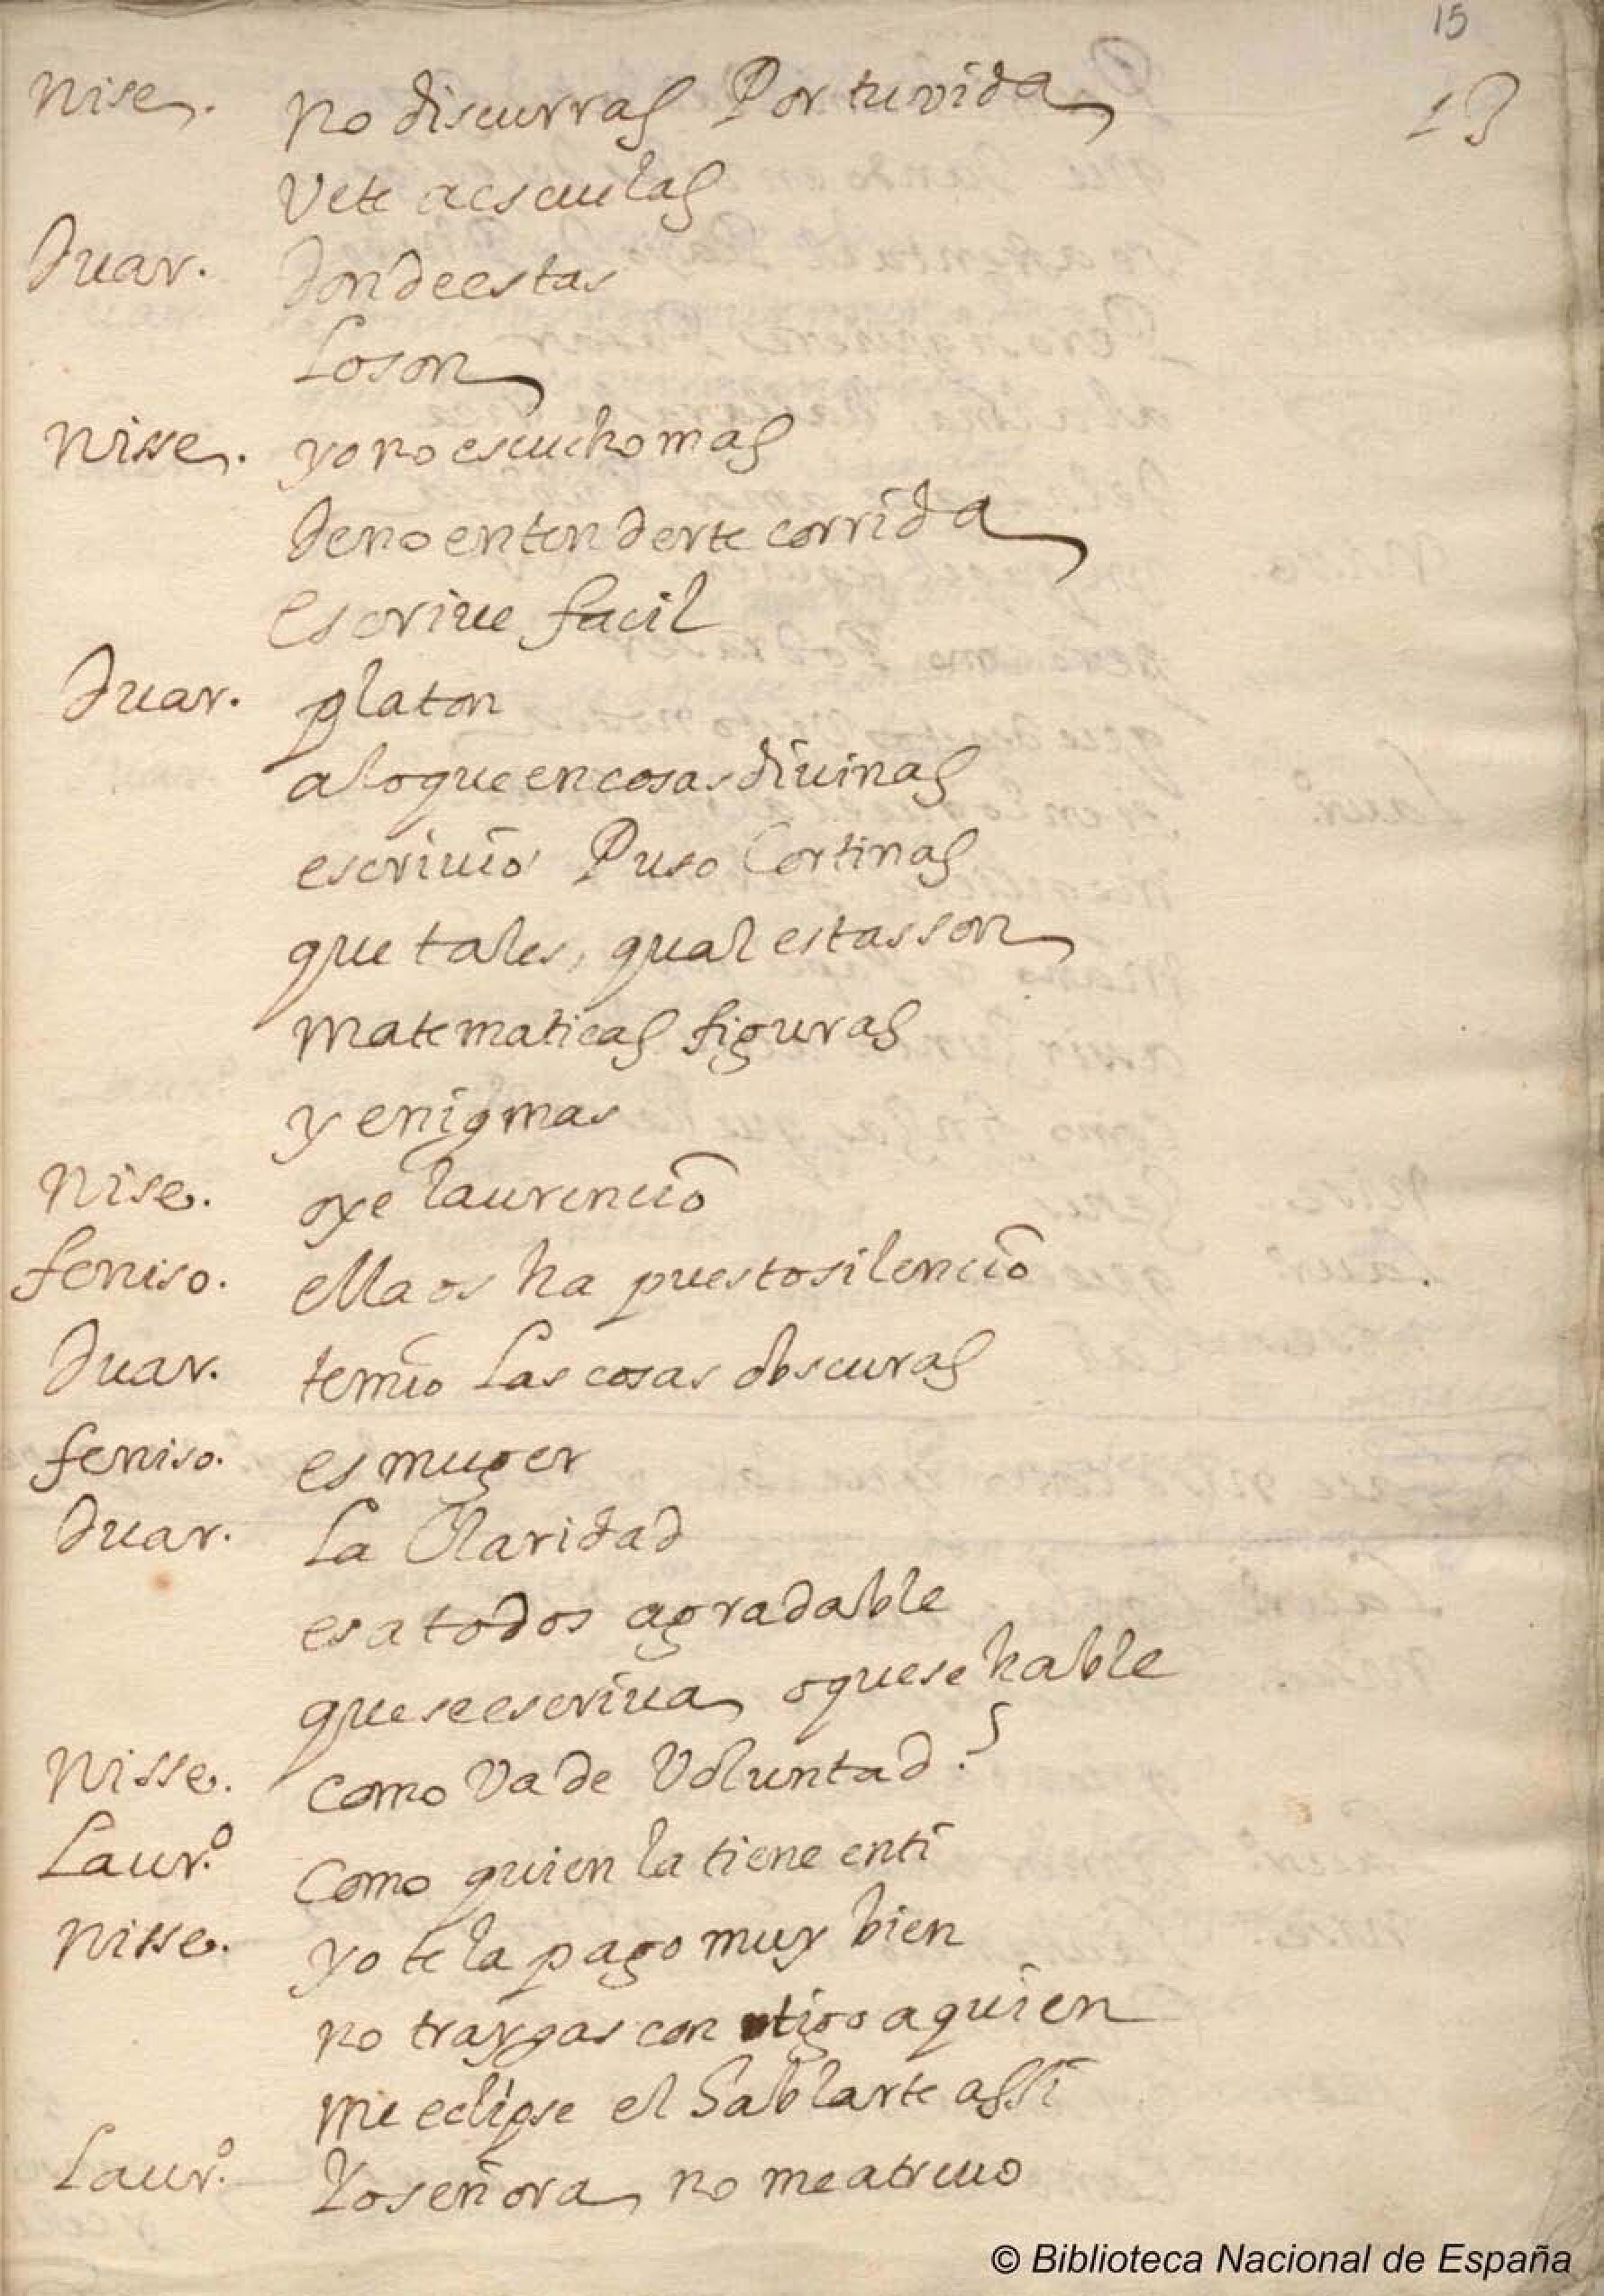 15
13
Nise. no discurras Por tu vida
vete a escuelas
Duar. donde estas
Loson
Nisse. yo no escucho mas
de no entenderte corrida
escrive facil
Duar. platon
a lo que en cosas diuinas
escriuio Puso Cortinas
que tales, qual estas son
Matematicas figuras
y enigmas
Nise. oye laurencio
feniso. ella os ha puesto silencio
Duar. temio Las cosas obscuras
feniso. es muger
Duar. La Claridad
es a todos agradable
que se escriua o que se hable
Nisse. como Va de Voluntad?
Laur.º Como quien la tiene en ti
Nisse. yo te la pago muy bien
no traygas contigo a quien
me eclipse el hablarte assi
Laur.º Yo señora no me atreuo
© Biblioteca Nacional de España